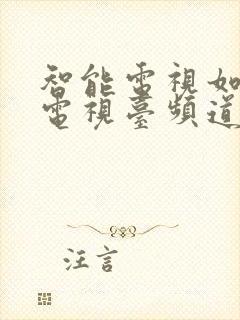 智能電視如
電視臺頻道
汪言